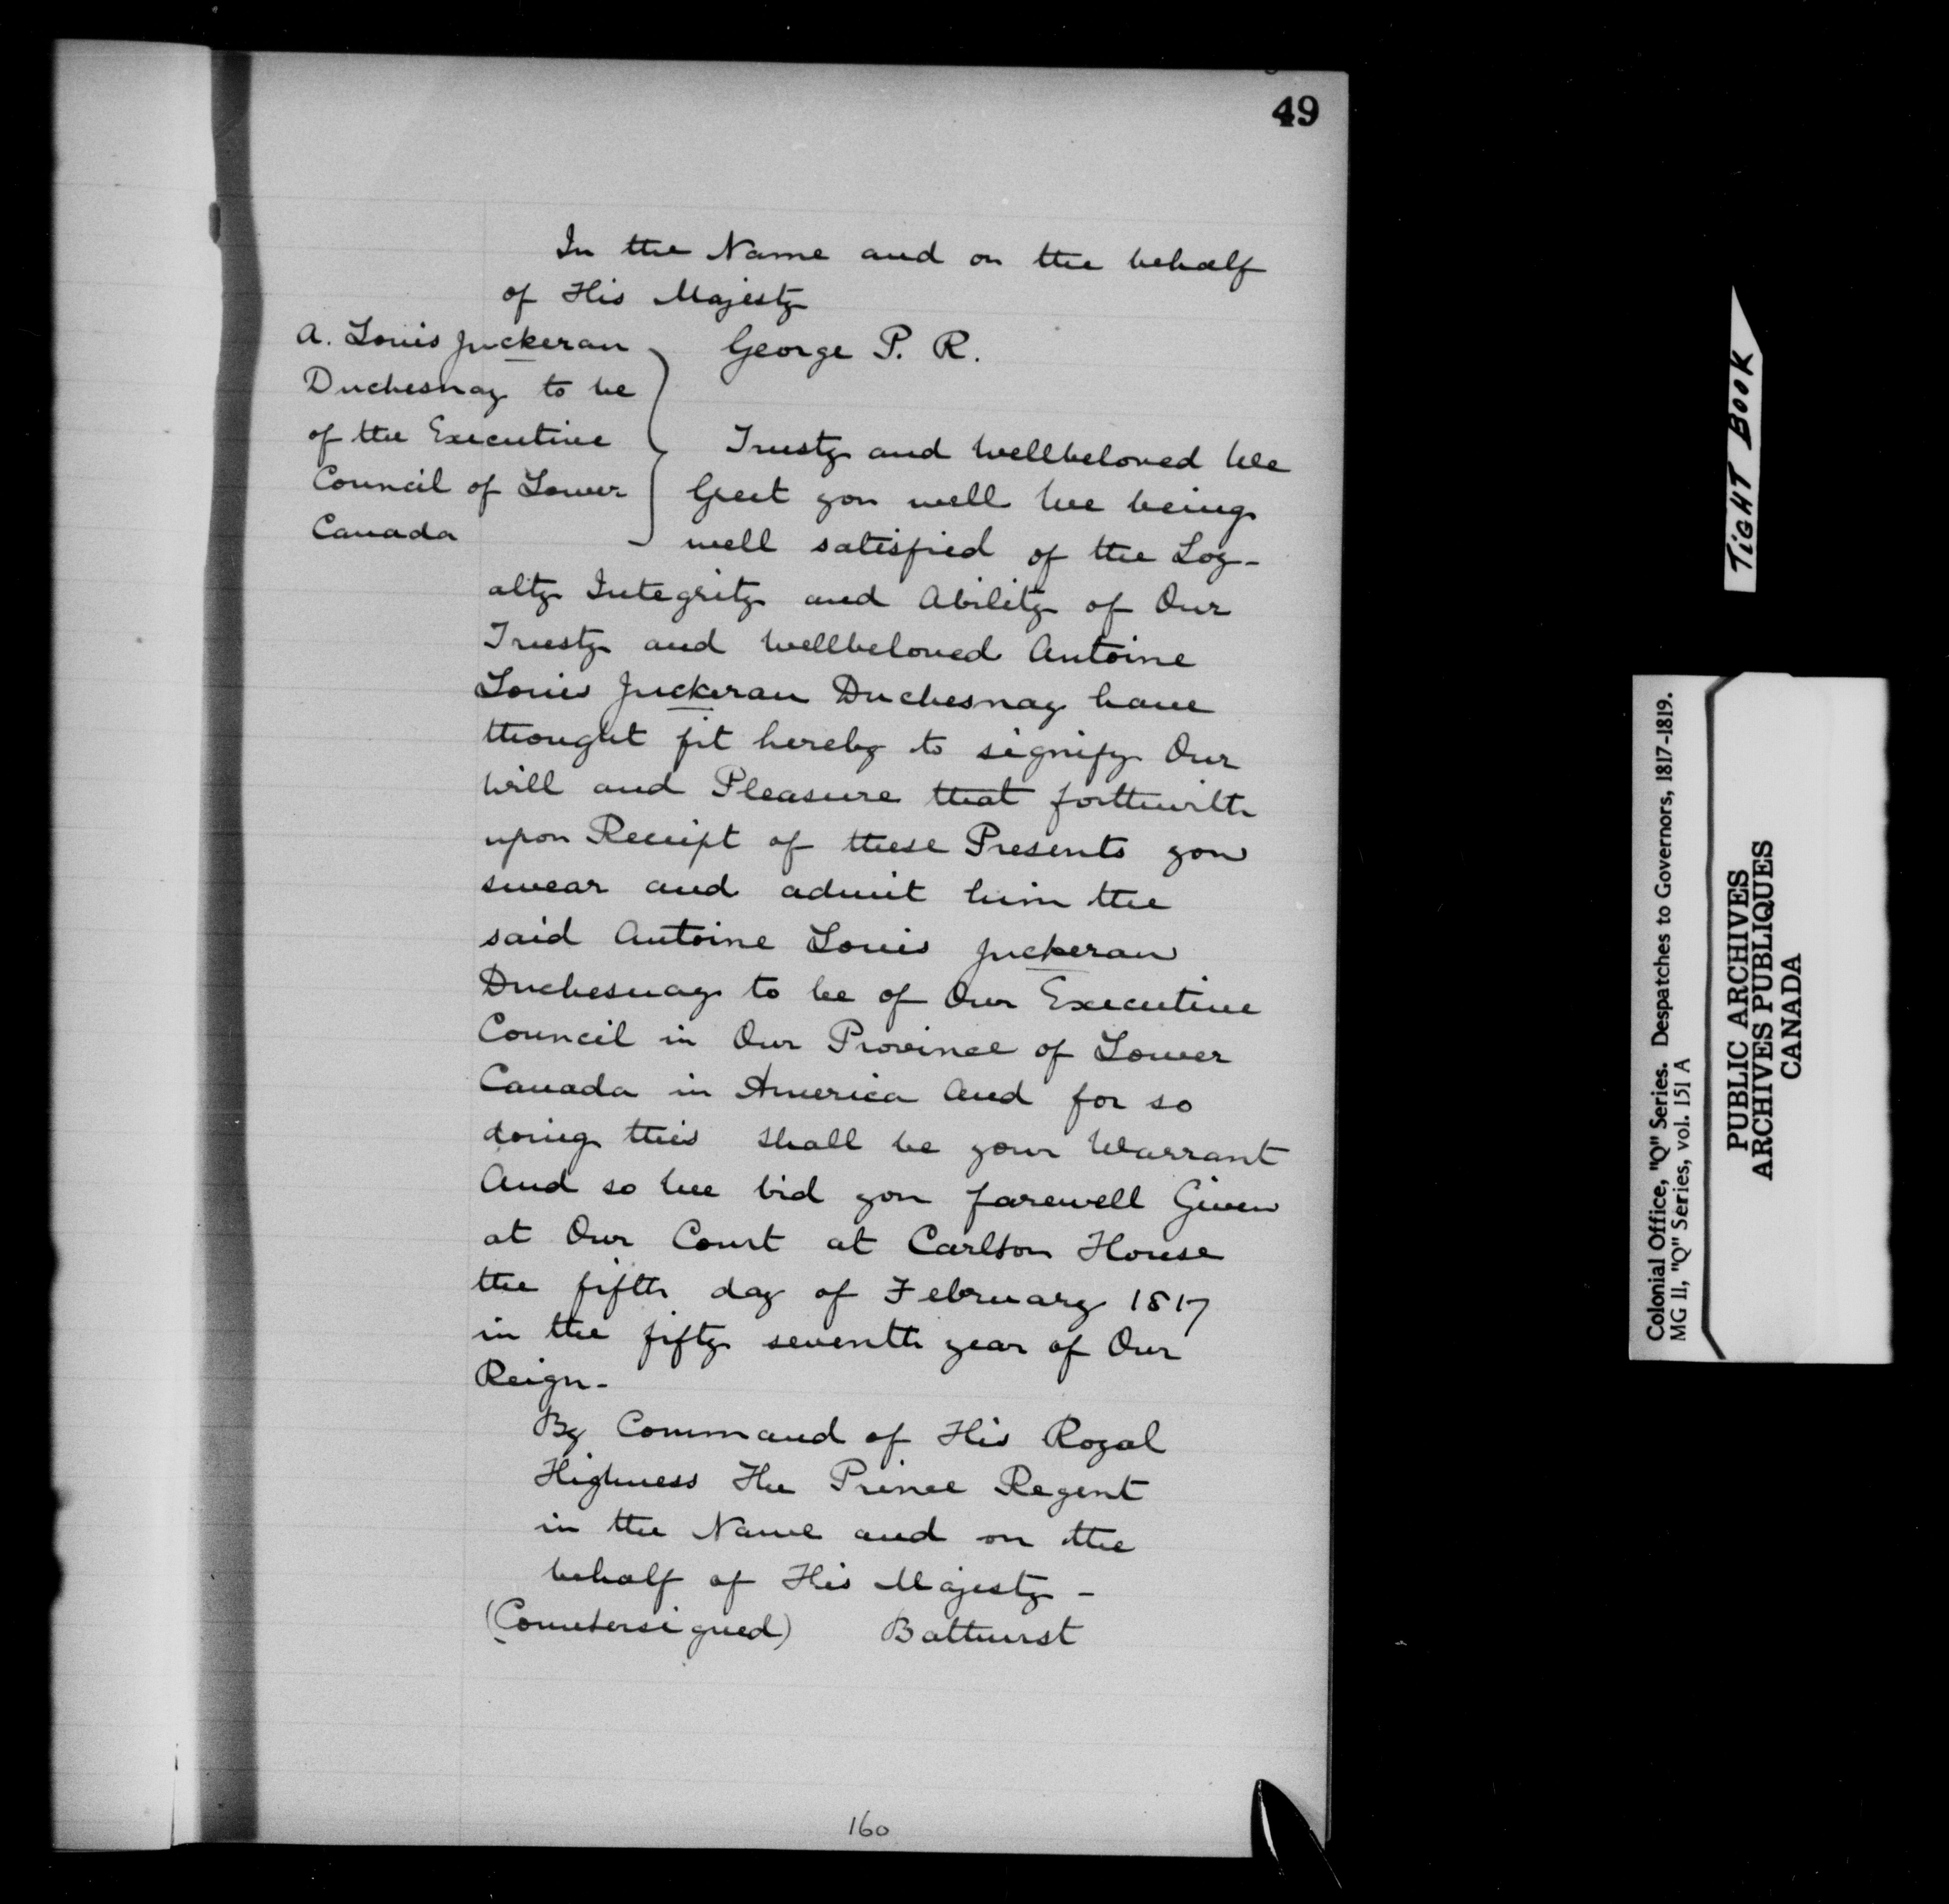 49
In the Name and on the behalf
of His Majesty
George P. R.
A. Louis Juckeran
Duchesnay to be
of the Executive
Council of Lower
Canada
Trusty and Wellbeloved We
Greet you well We being
well satisfied of the Loy-
alty Integrity and Ability of Our
Trusty and Wellbeloved Antoine
Louis Juckeran Duchesnay have
thought fit hereby to signify Our
Will and Pleasure that forthwith
upon Receipt of these Presents you
swear and admit him the
said Antoine Louis Juckeran
Duchesnay to be of Our Executive
Council in Our Province of Lower
Canada in America And for so
doing this shall be your Warrant
And so We bid you farewell Given
at Our Court at Carlton House
the fifth day of February 1817
in the fifty seventh year of Our
Reign-
By Command of His Royal
Highness The Prince Regent
in the Name and on the
behalf of His Majesty -
(Countersigned) Bathurst
160
TIGHT BOOK
Colonial Office, "Q" Series. Despatches to Governors, 1817-1819.
MG II, "Q" Series, vol. 151 A
PUBLIC ARCHIVES
ARCHIVES PUBLIQUES
CANADA